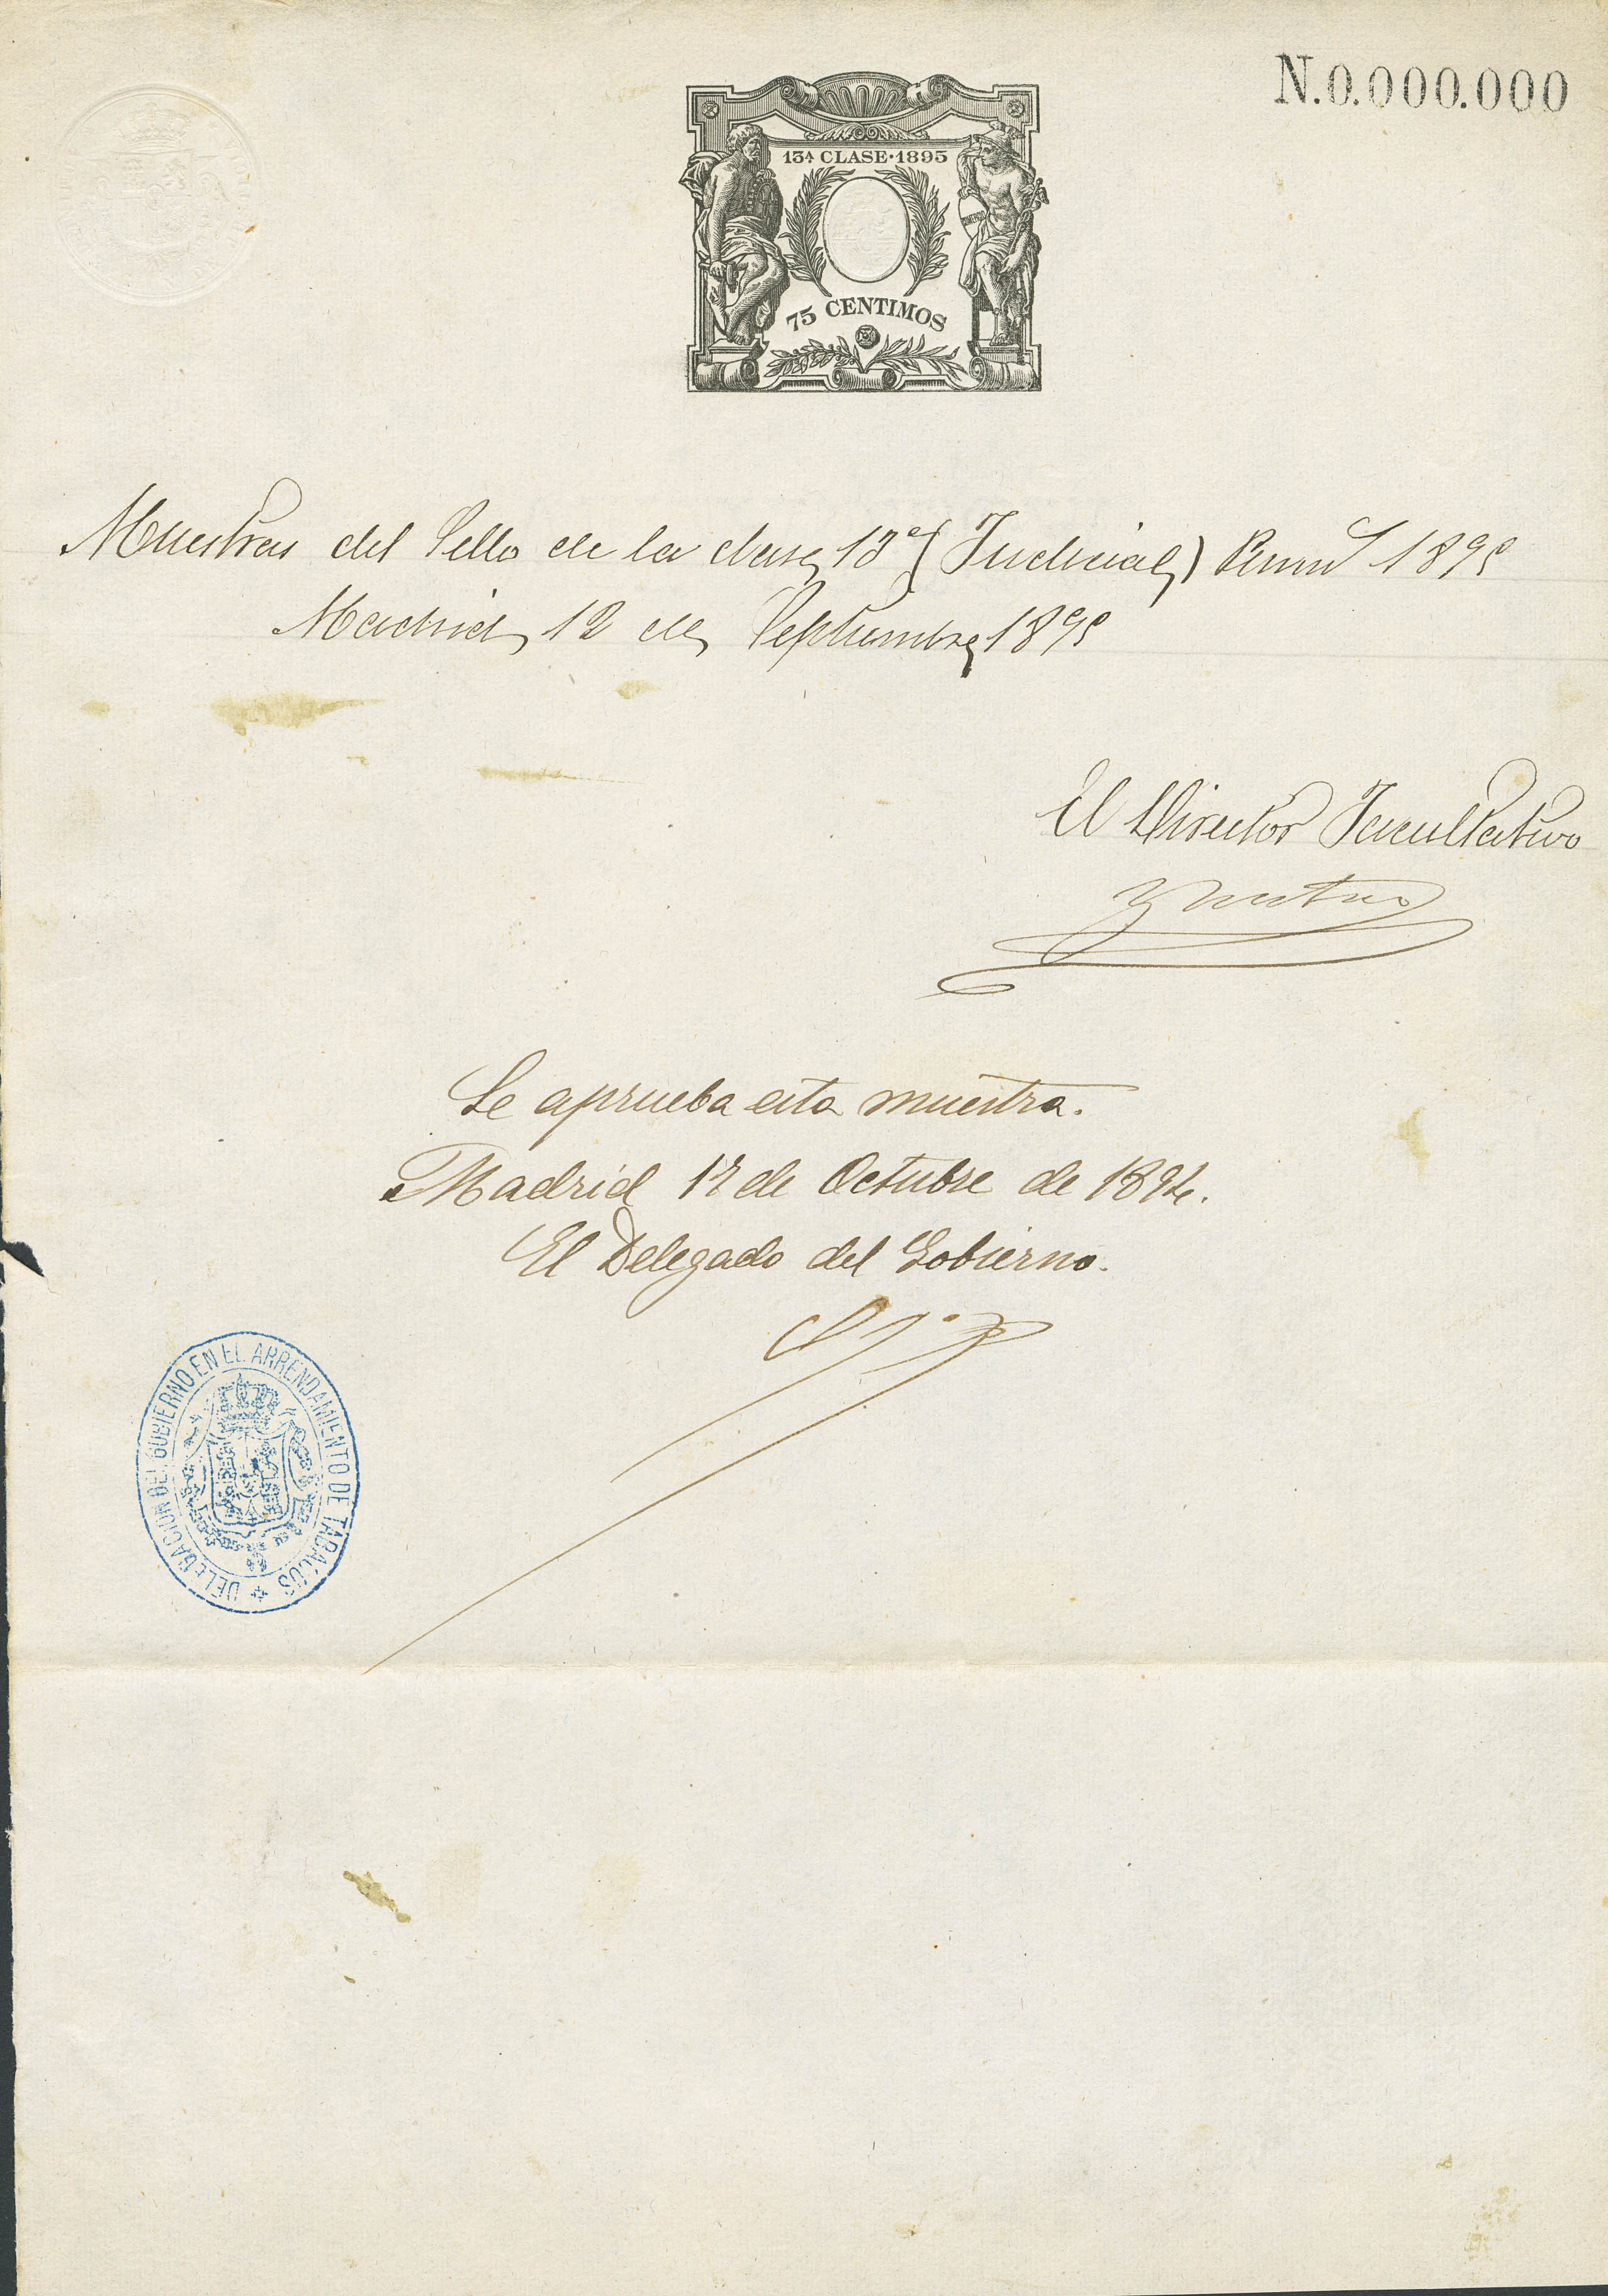 N.0.000.000
13ª CLASE·1895
75 CENTIMOS
Muestras del Sello de la clase 13ª (Judicial) 1895
Madrid, 12 de Septiembre 1895
El Director Facultativo
Se aprueba esta muestra.
Madrid 17 de Octubre de 1894.
El Delegado del Gobierno.
DELEGACION DEL GOBIERNO EN EL ARRENDAMIENTO DE TABACOS